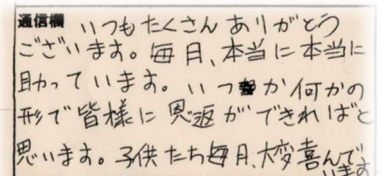 通信欄 いつもたくさんありがとう
ございます。毎月、本当に本当に
助っています。いつか何かの
形で皆様に恩返ができればと
思います。子供たち毎月、大変喜んで
います